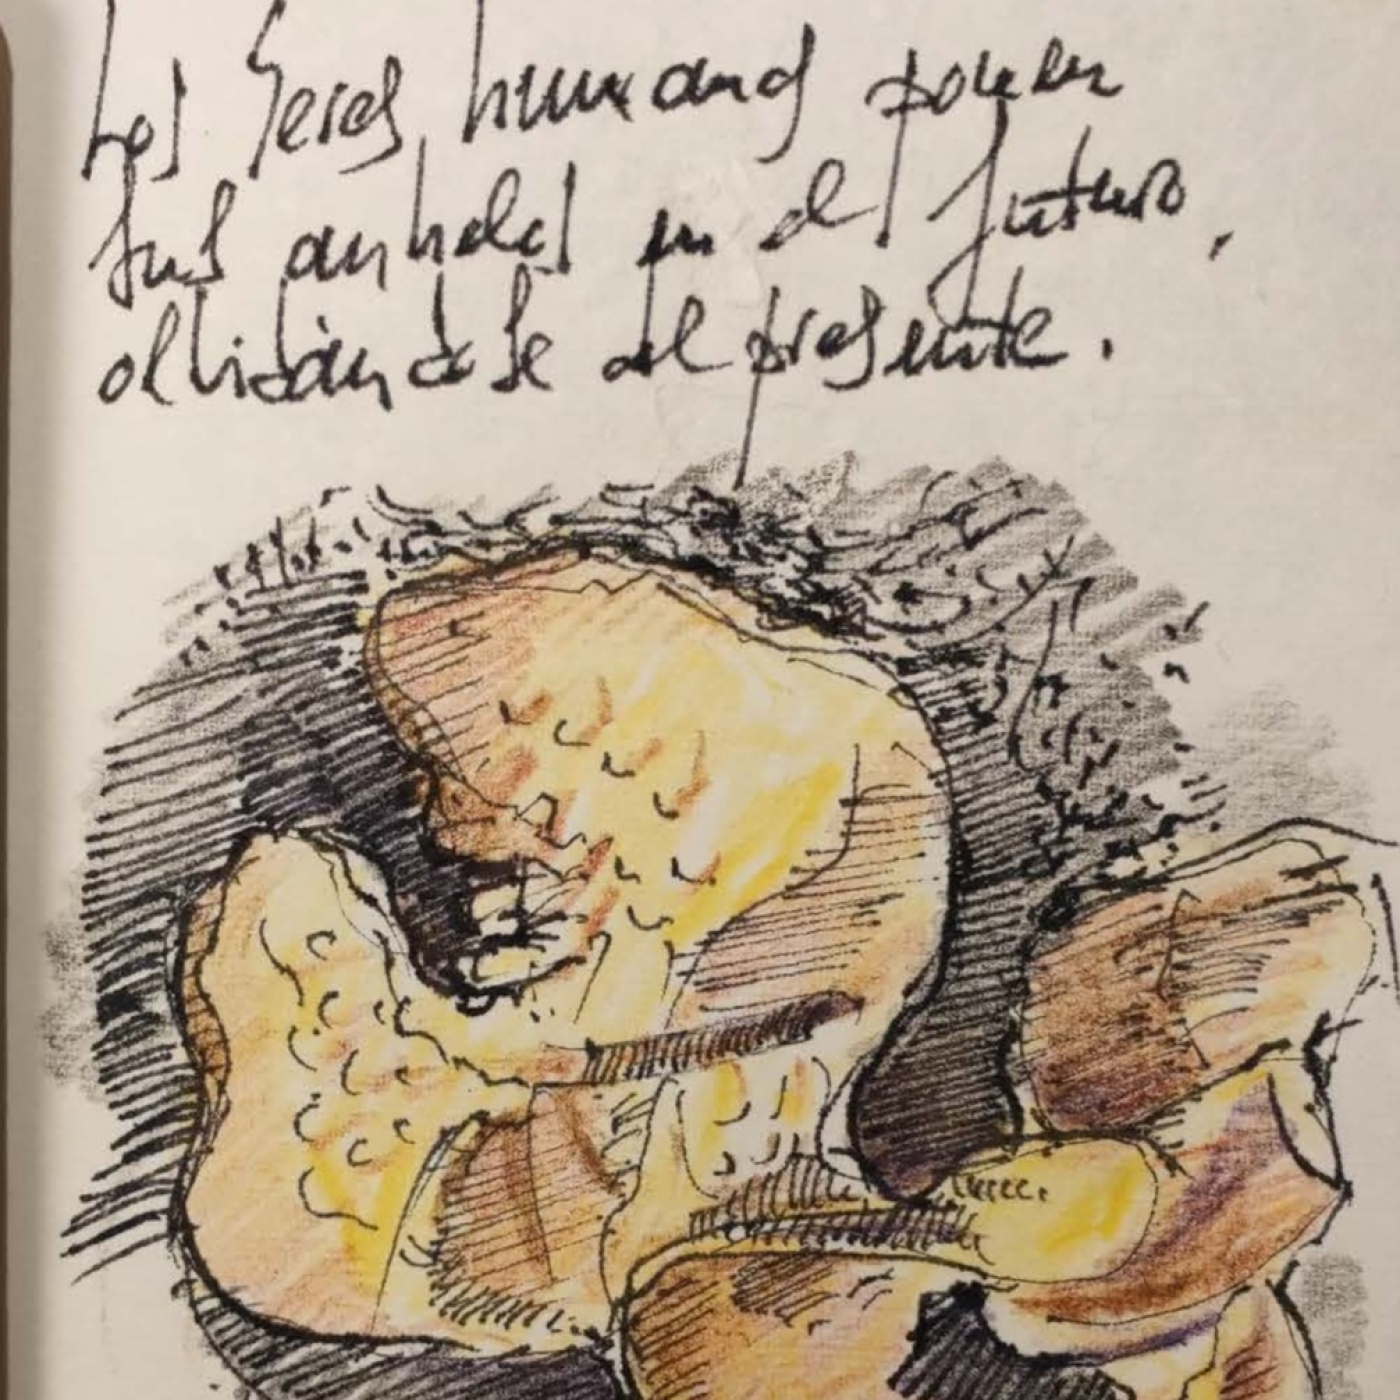 Los seres humanos ponen
sus anhelos en el futuro,
olvidándose del presente.